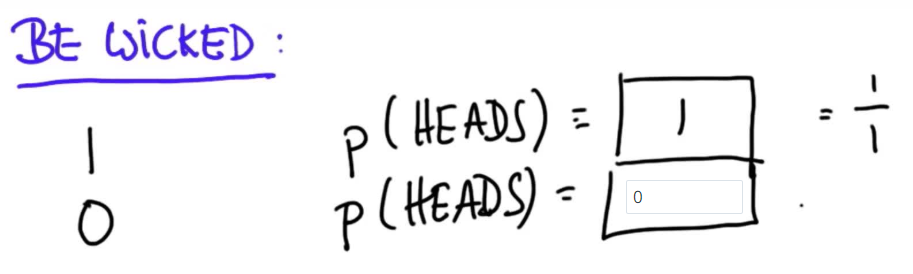 BE WICKED:
1 P(HEADS) = 1 = 1/1
0 P(HEADS) = 0 .